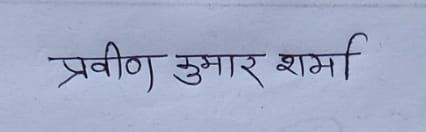 प्रवीण कुमार शर्मा